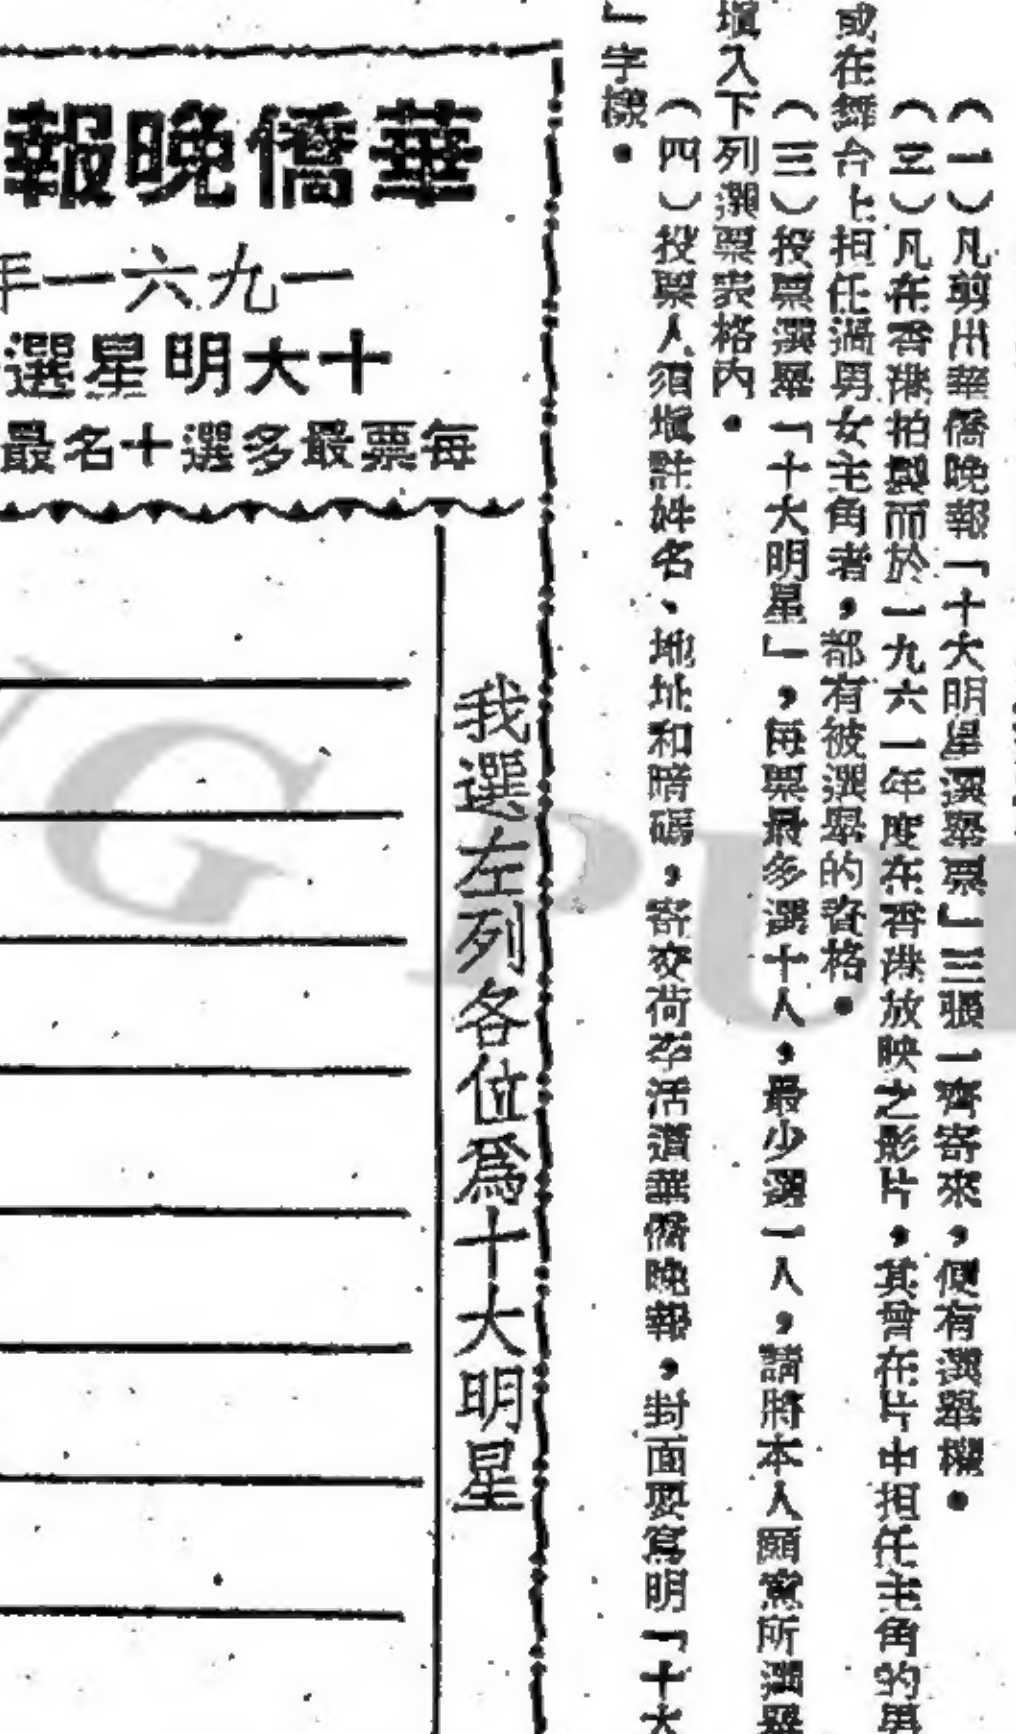 （一）凡剪出華僑晚報「十大明星選舉票」三張一齊寄來，便有選舉權。
（二）凡在香港拍製而於一九六一年度在香港放映之影片，其曾在片中担任主角的男
或在舞台上担任過男女主角者，都有被選舉的資格。
（三）投票選舉「十大明星」，每票最多選十人，最少選一人，請將本人願意所選舉
填入下列選票表格內。
（四）投票人須填註姓名、地址和暗碼，寄交荷李活道華僑晚報，封面要寫明「十大
」字樣。
華僑晚報
一九六一年
十大明星選
每票最多選十名最
我選左列各位為十大明星
G PU